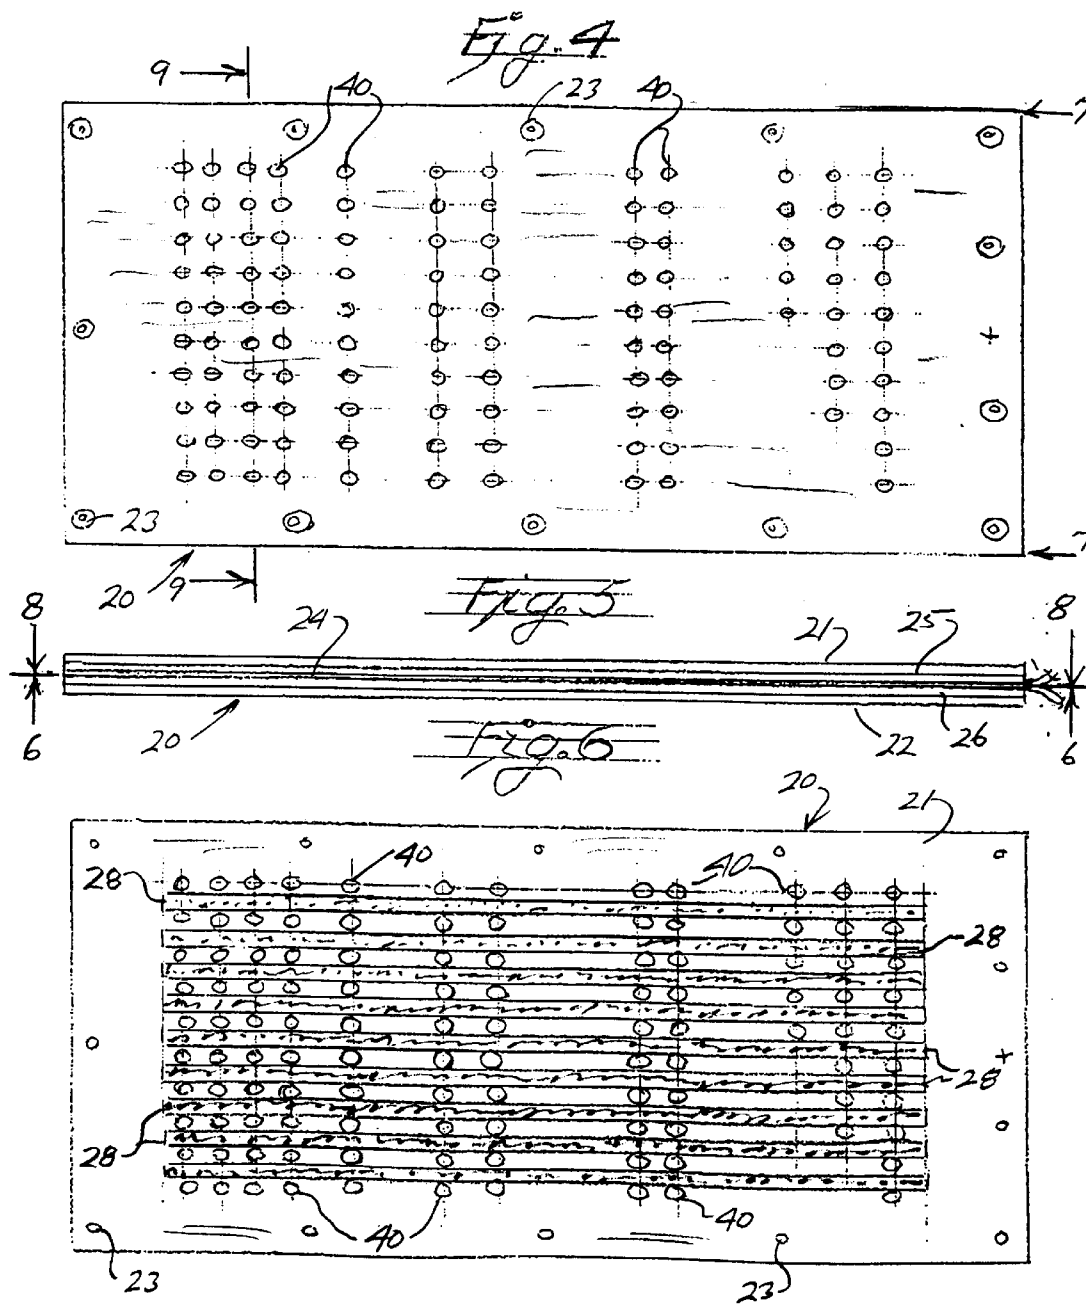 Fig. 4
9 40 23 40 7
23
20 9 7
Fig. 5
8 24 21 25 8
6 20 22 26 6
Fig. 6
20 21
28 40 40
28
28
28
28
40 40
23 23